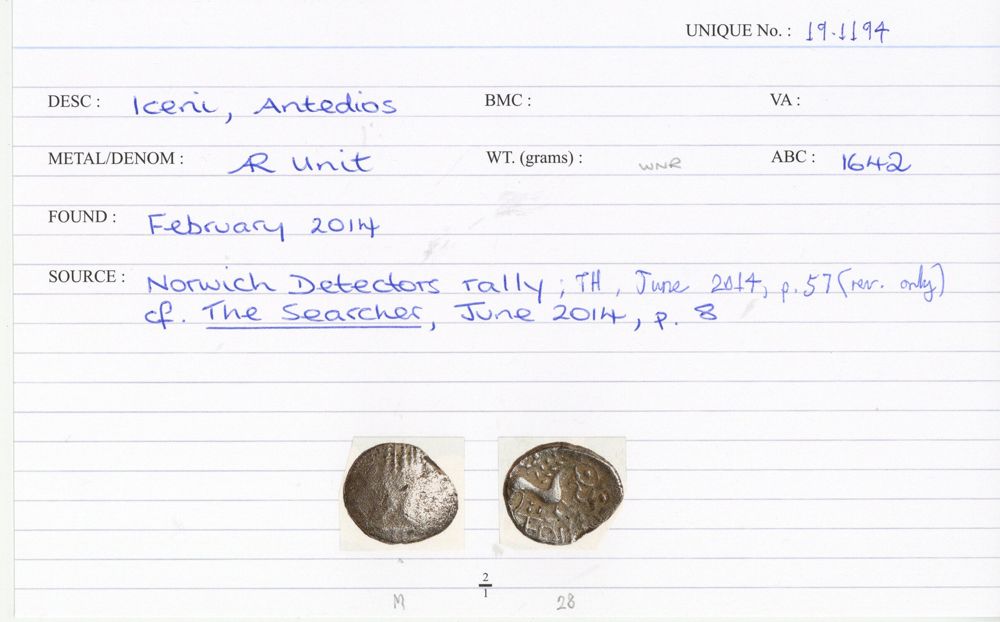 UNIQUE No. : 19.1194
DESC : Iceni, Antedios BMC : VA :
METAL/DENOM : AR Unit WT. (grams) : WNR ABC : 1642
FOUND : February 2014
SOURCE : Norwich Detectors rally ; TH, June 2014, p.57 (rev. only)
cf. The Searcher, June 2014, p. 8
2
1
M 28